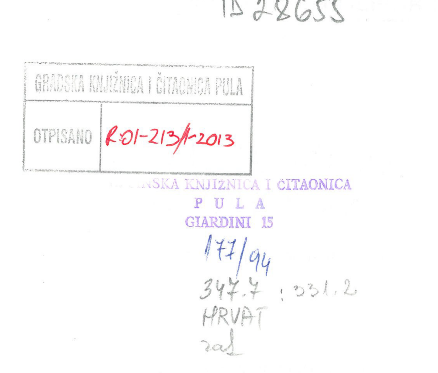 ID 28655
GRADSKA KNJIŽNICA I ČITAONICA PULA
OTPISANO R-01-213/1-2013
KNJIŽNICA I ČITAONICA
PULA
GIARDINI 15
177/94
347.7 : 331.2
HRVAT